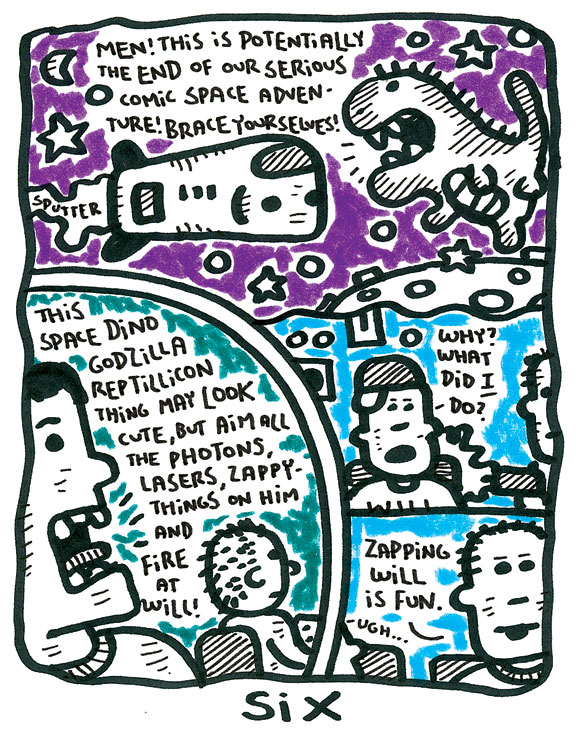 MEN! THIS IS POTENTIALLY
THE END OF OUR SERIOUS
COMIC SPACE ADVEN-
TURE! BRACE YOURSELVES!
SPUTTER
THIS
SPACE DINO
GODZILLA
REPTILLICON
THING MAY LOOK
CUTE, BUT AIM ALL
THE PHOTONS,
LASERS, ZAPPY-
THINGS ON HIM
AND
FIRE
AT
WILL!
WHY?
WHAT
DID I
DO?
WILL
ZAPPING
WILL
IS FUN.
-UGH...
SIX